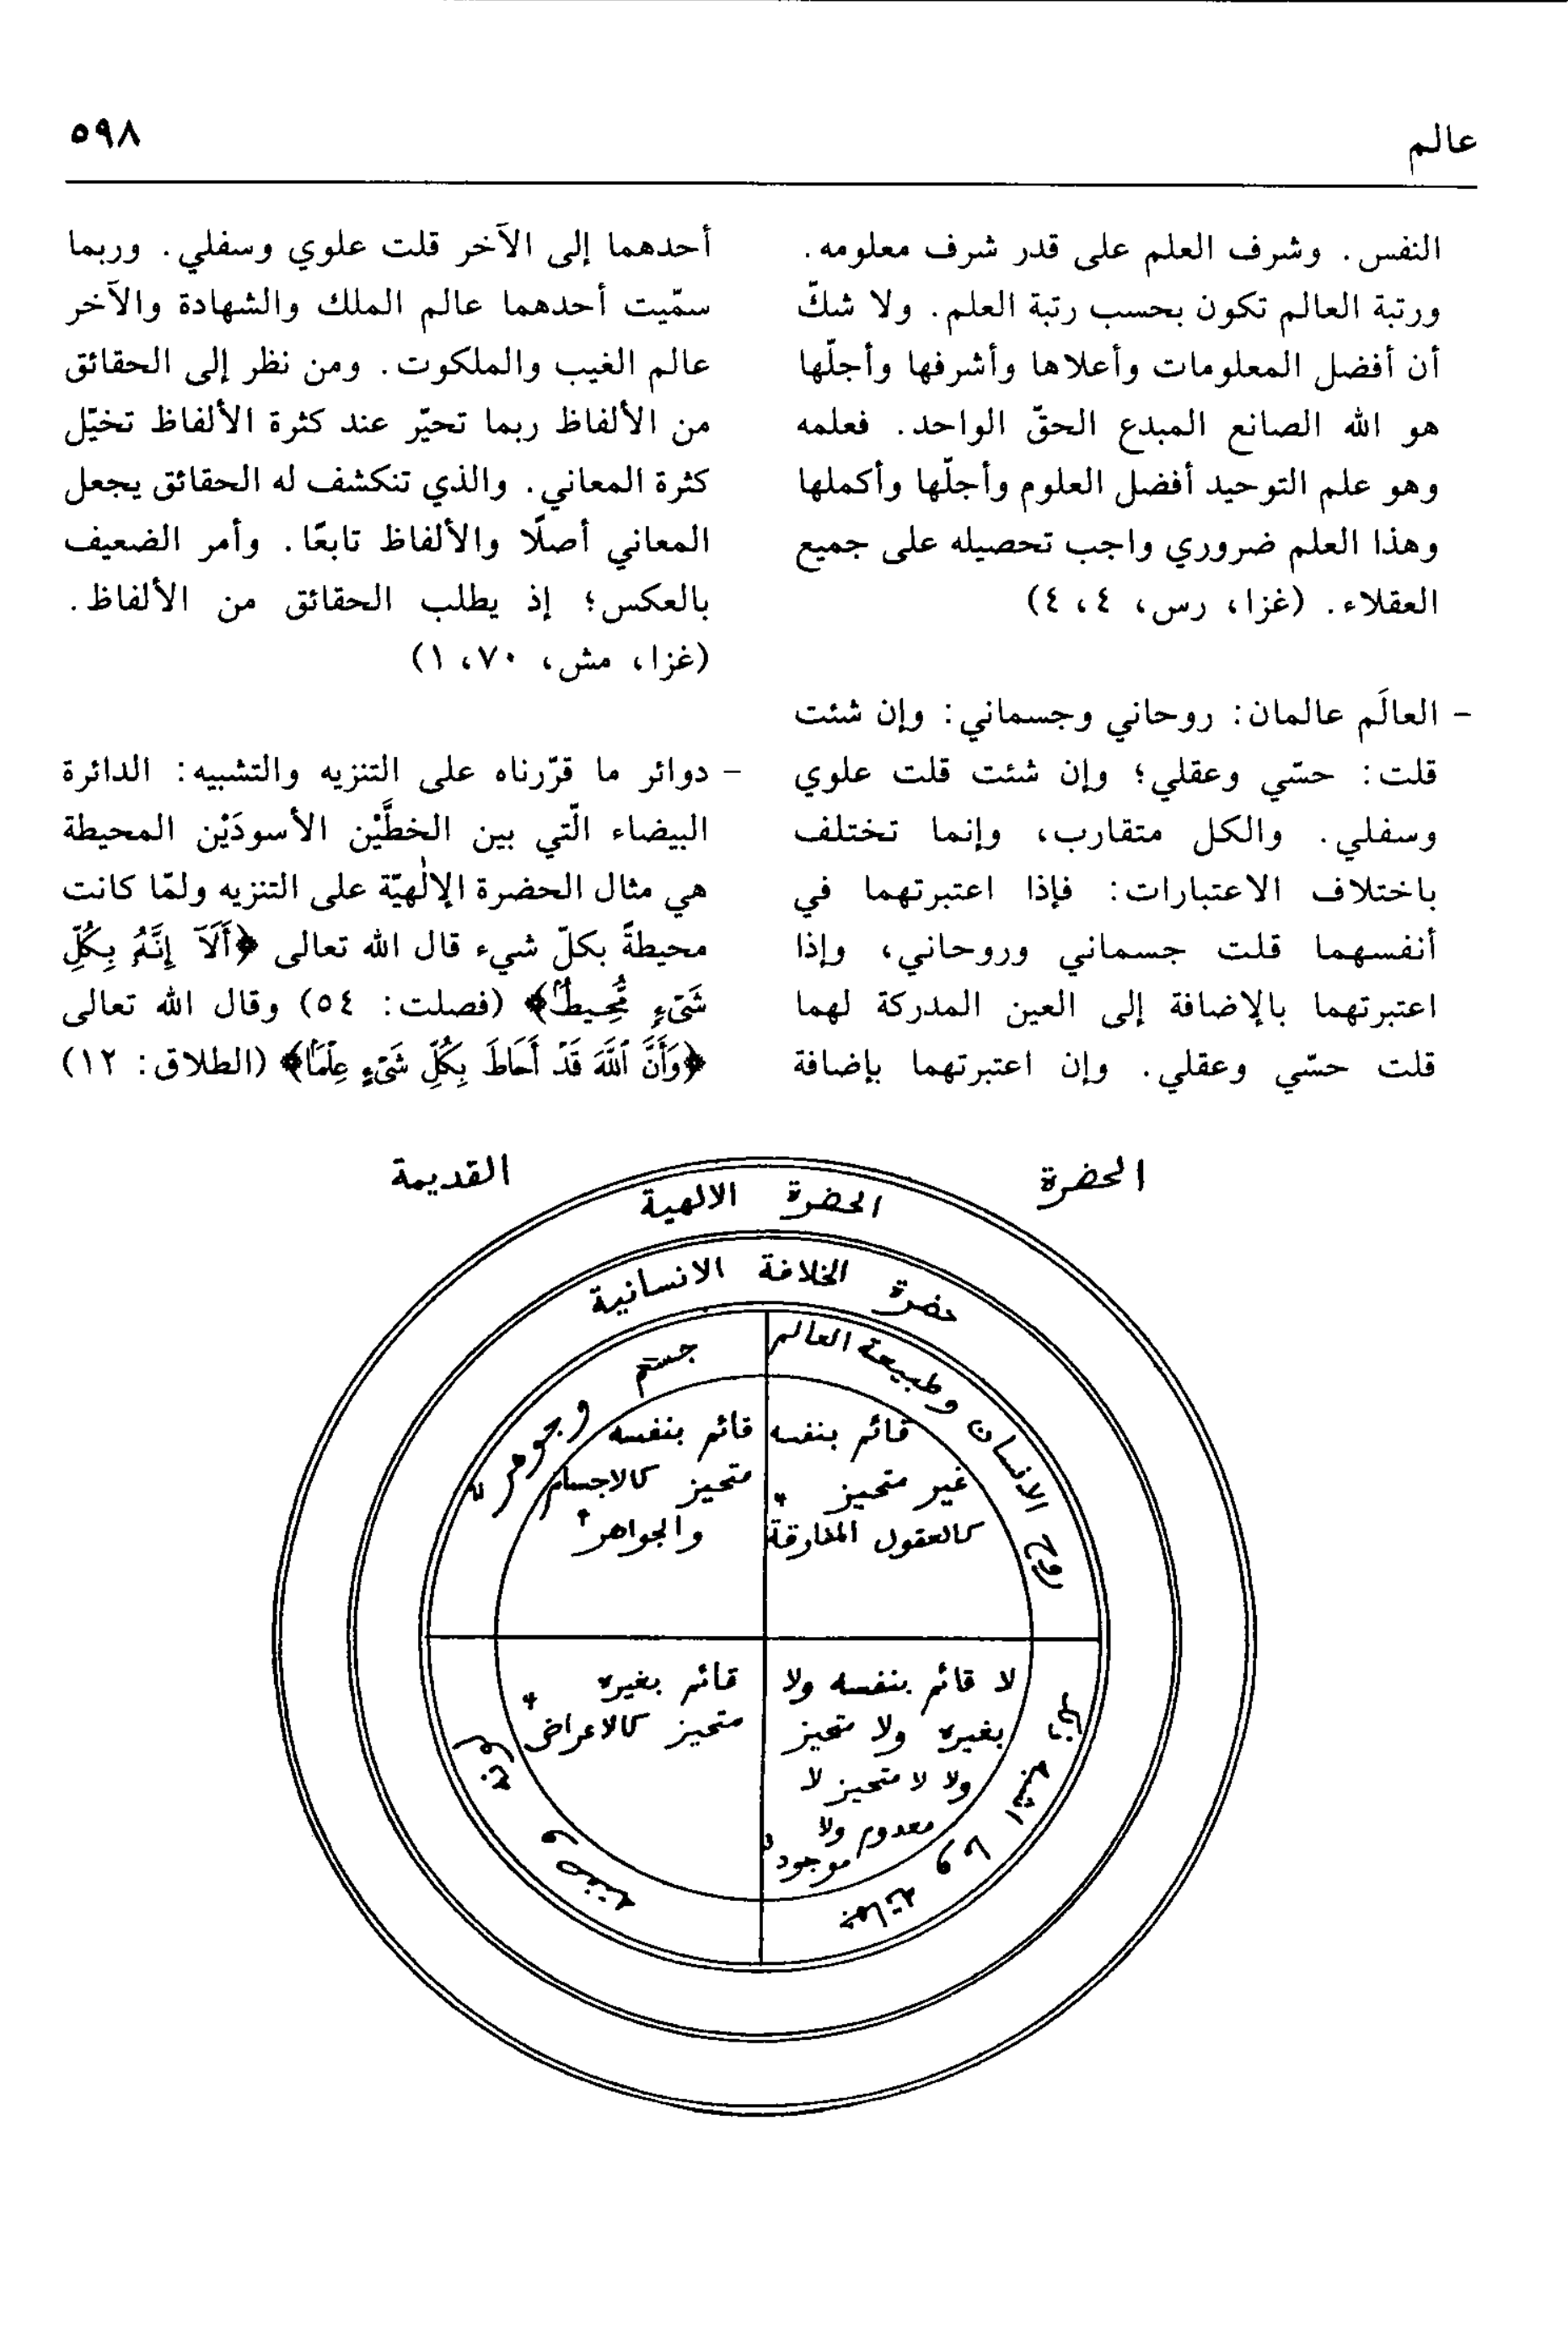 عالم
٥٩٨
النفس. وشرف العلم على قدر شرف معلومه.
ورتبة العالم تكون بحسب رتبة العلم. ولا شكّ
أن أفضل المعلومات وأعلاها وأشرفها وأجلّها
هو الله الصانع المبدع الحقّ الواحد. فعلمه
وهو علم التوحيد أفضل العلوم وأجلّها وأكملها
وهذا العلم ضروري واجب تحصيله على جميع
العقلاء. (غزا، رس، ٤، ٤)
- العالَم عالمان: روحاني وجسماني: وإن شئت
قلت: حسّي وعقلي؛ وإن شئت قلت علوي
وسفلي. والكل متقارب، وإنما تختلف
باختلاف الاعتبارات: فإذا اعتبرتهما في
أنفسهما قلت جسماني وروحاني، وإذا
اعتبرتهما بالإضافة إلى العين المدركة لهما
قلت حسّي وعقلي. وإن اعتبرتهما بإضافة
أحدهما إلى الآخر قلت علوي وسفلي. وربما
سمّيت أحدهما عالم الملك والشهادة والآخر
عالم الغيب والملكوت. ومن نظر إلى الحقائق
من الألفاظ ربما تحيّر عند كثرة الألفاظ تخيّل
كثرة المعاني. والذي تنكشف له الحقائق يجعل
المعاني أصلًا والألفاظ تابعًا. وأمر الضعيف
بالعكس؛ إذ يطلب الحقائق من الألفاظ.
(غزا، مش، ٧٠، ١)
- دوائر ما قرّرناه على التنزيه والتشبيه: الدائرة
البيضاء الّتي بين الخطَّيْن الأسودَيْن المحيطة
هي مثال الحضرة الإلٰهيّة على التنزيه ولمّا كانت
محيطةً بكلّ شيء قال الله تعالى ﴿أَلَآ إِنَّهُۥ بِكُلِّ
شَىْءٍ مُّحِيطٌۢ﴾ (فصلت: ٥٤) وقال الله تعالى
﴿وَأَنَّ ٱللَّهَ قَدْ أَحَاطَ بِكُلِّ شَىْءٍ عِلْمًۢا﴾ (الطلاق: ١٢)
الحضرة
القديمة
الحضرة الالهية
حضرة الخلافة الانسانية
روح الانسان وطبيعة العالم
جسم وجوهر
قائم بنفسه
غير متحيز
كالعقول المفارقة
قائم بنفسه
متحيز كالاجسام
والجواهر
لا قائم بنفسه ولا
بغيره ولا متحيز
ولا لا متحيز لا
معدوم ولا
موجود
قائم بغيره
متحيز كالاعراض